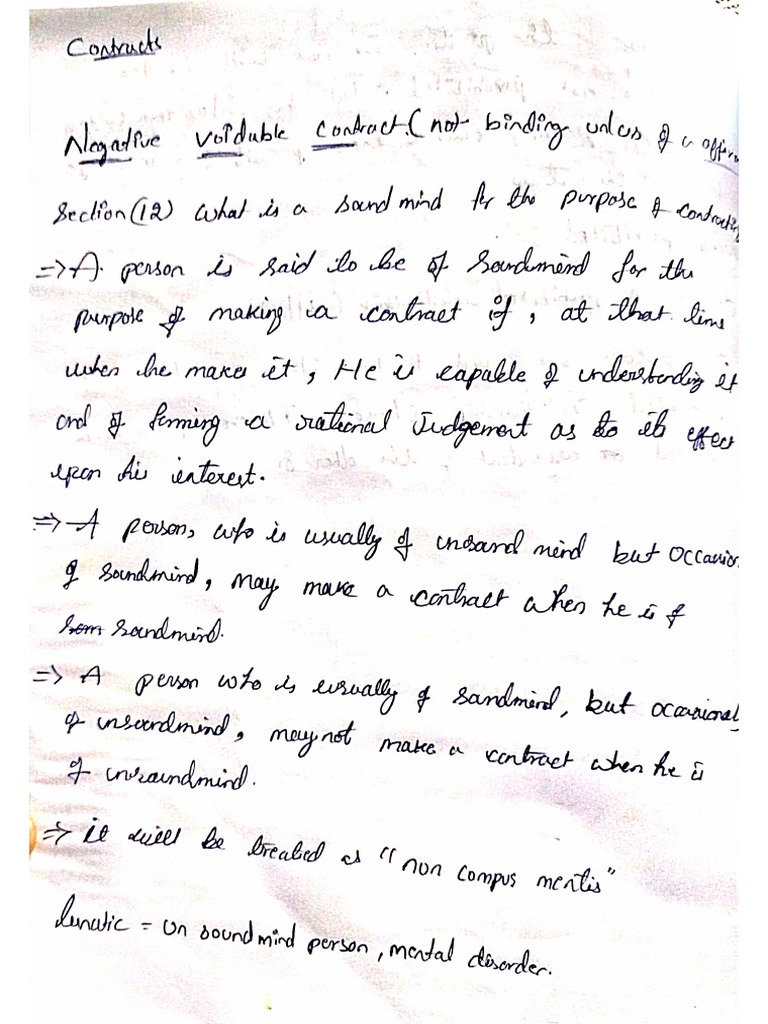 Contracts
Negative voidable contract (not binding unless if a affirm
Section (12) What is a sound mind for the purpose of contracting
=> A person is said to be of soundmind for the
purpose of making a contract if, at that time
when he makes it, He is capable of understanding it
and of forming a rational Judgement as to its effect
upon his interest.
=> A person, who is usually of unsound mind but occasion
of soundmind, may make a contract when he is of
som soundmind.
=> A person who is usually of sandmind, but occasionaly
of unsoundmind, may not make a contract when he is
of unsoundmind.
=> it will be treated as "non compus mentis"
lunatic = un soundmind person, mental disorder.